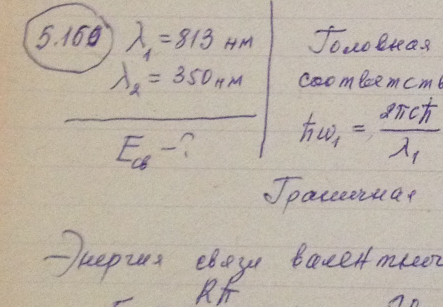 5.160 λ₁ = 813 нм
λ₂ = 350 нм
E_св - ?
Головная
соответств
ħω₁ = 2πcħ / λ₁
Граничная
Энергия связи валентны
Rħ